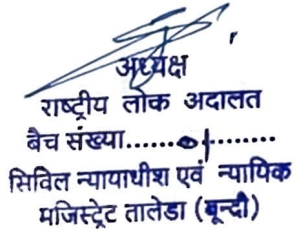 अध्यक्ष
राष्ट्रीय लोक अदालत
बैच संख्या...............
सिविल न्यायाधीश एवं न्यायिक
मजिस्ट्रेट तालेडा (बून्दी)